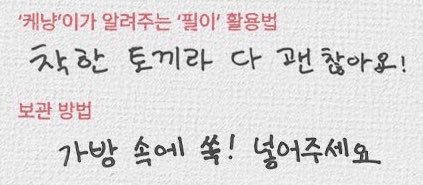 '케냥'이가 알려주는 '필이' 활용법
착한 토끼라 다 괜찮아요!
보관 방법
가방 속에 쏙! 넣어주세요